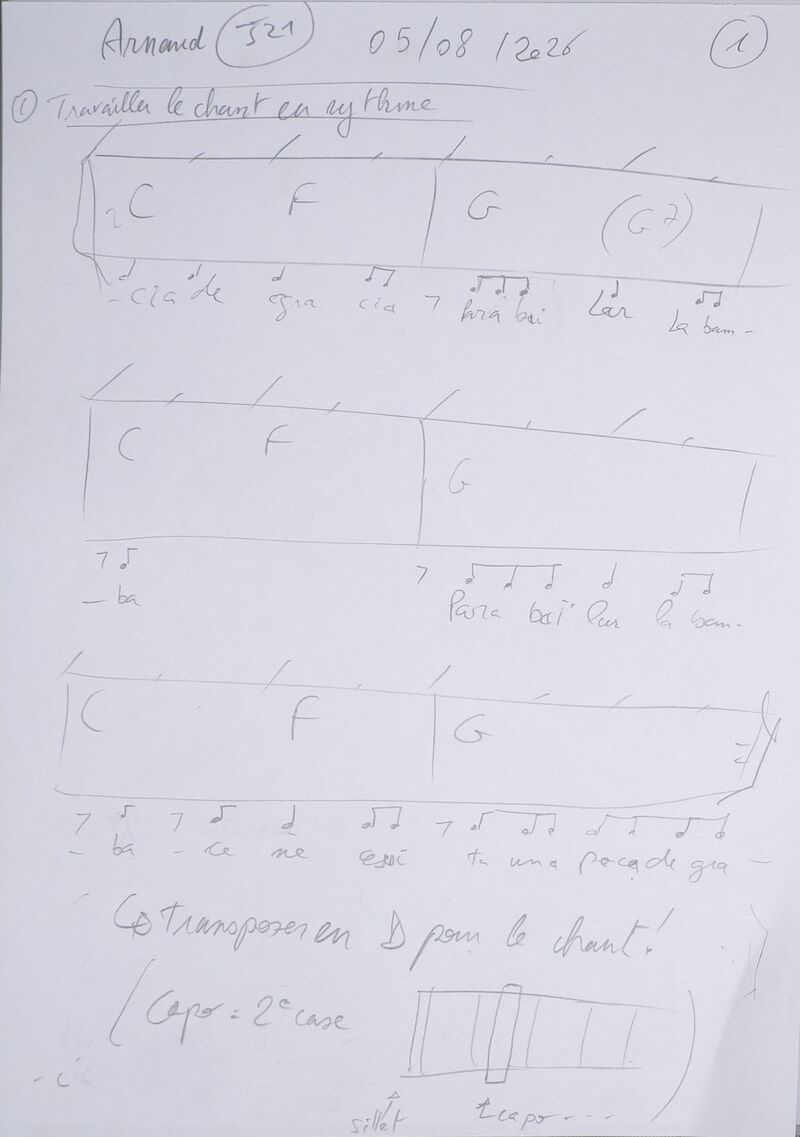 Arnaud 05/08/2026 1
① Travailler le chant en rythme
C F G (G7)
- cia de gra cia 7 Para bai lar la bam-
C F G
7
- ba 7 Para bai lar la bam-
C F G
7 7 7
- ba - ce ne cesi ta una poca de gra -
↳ Transposer en D pour le chant!
(Capo = 2e case
sillet capo ....
)